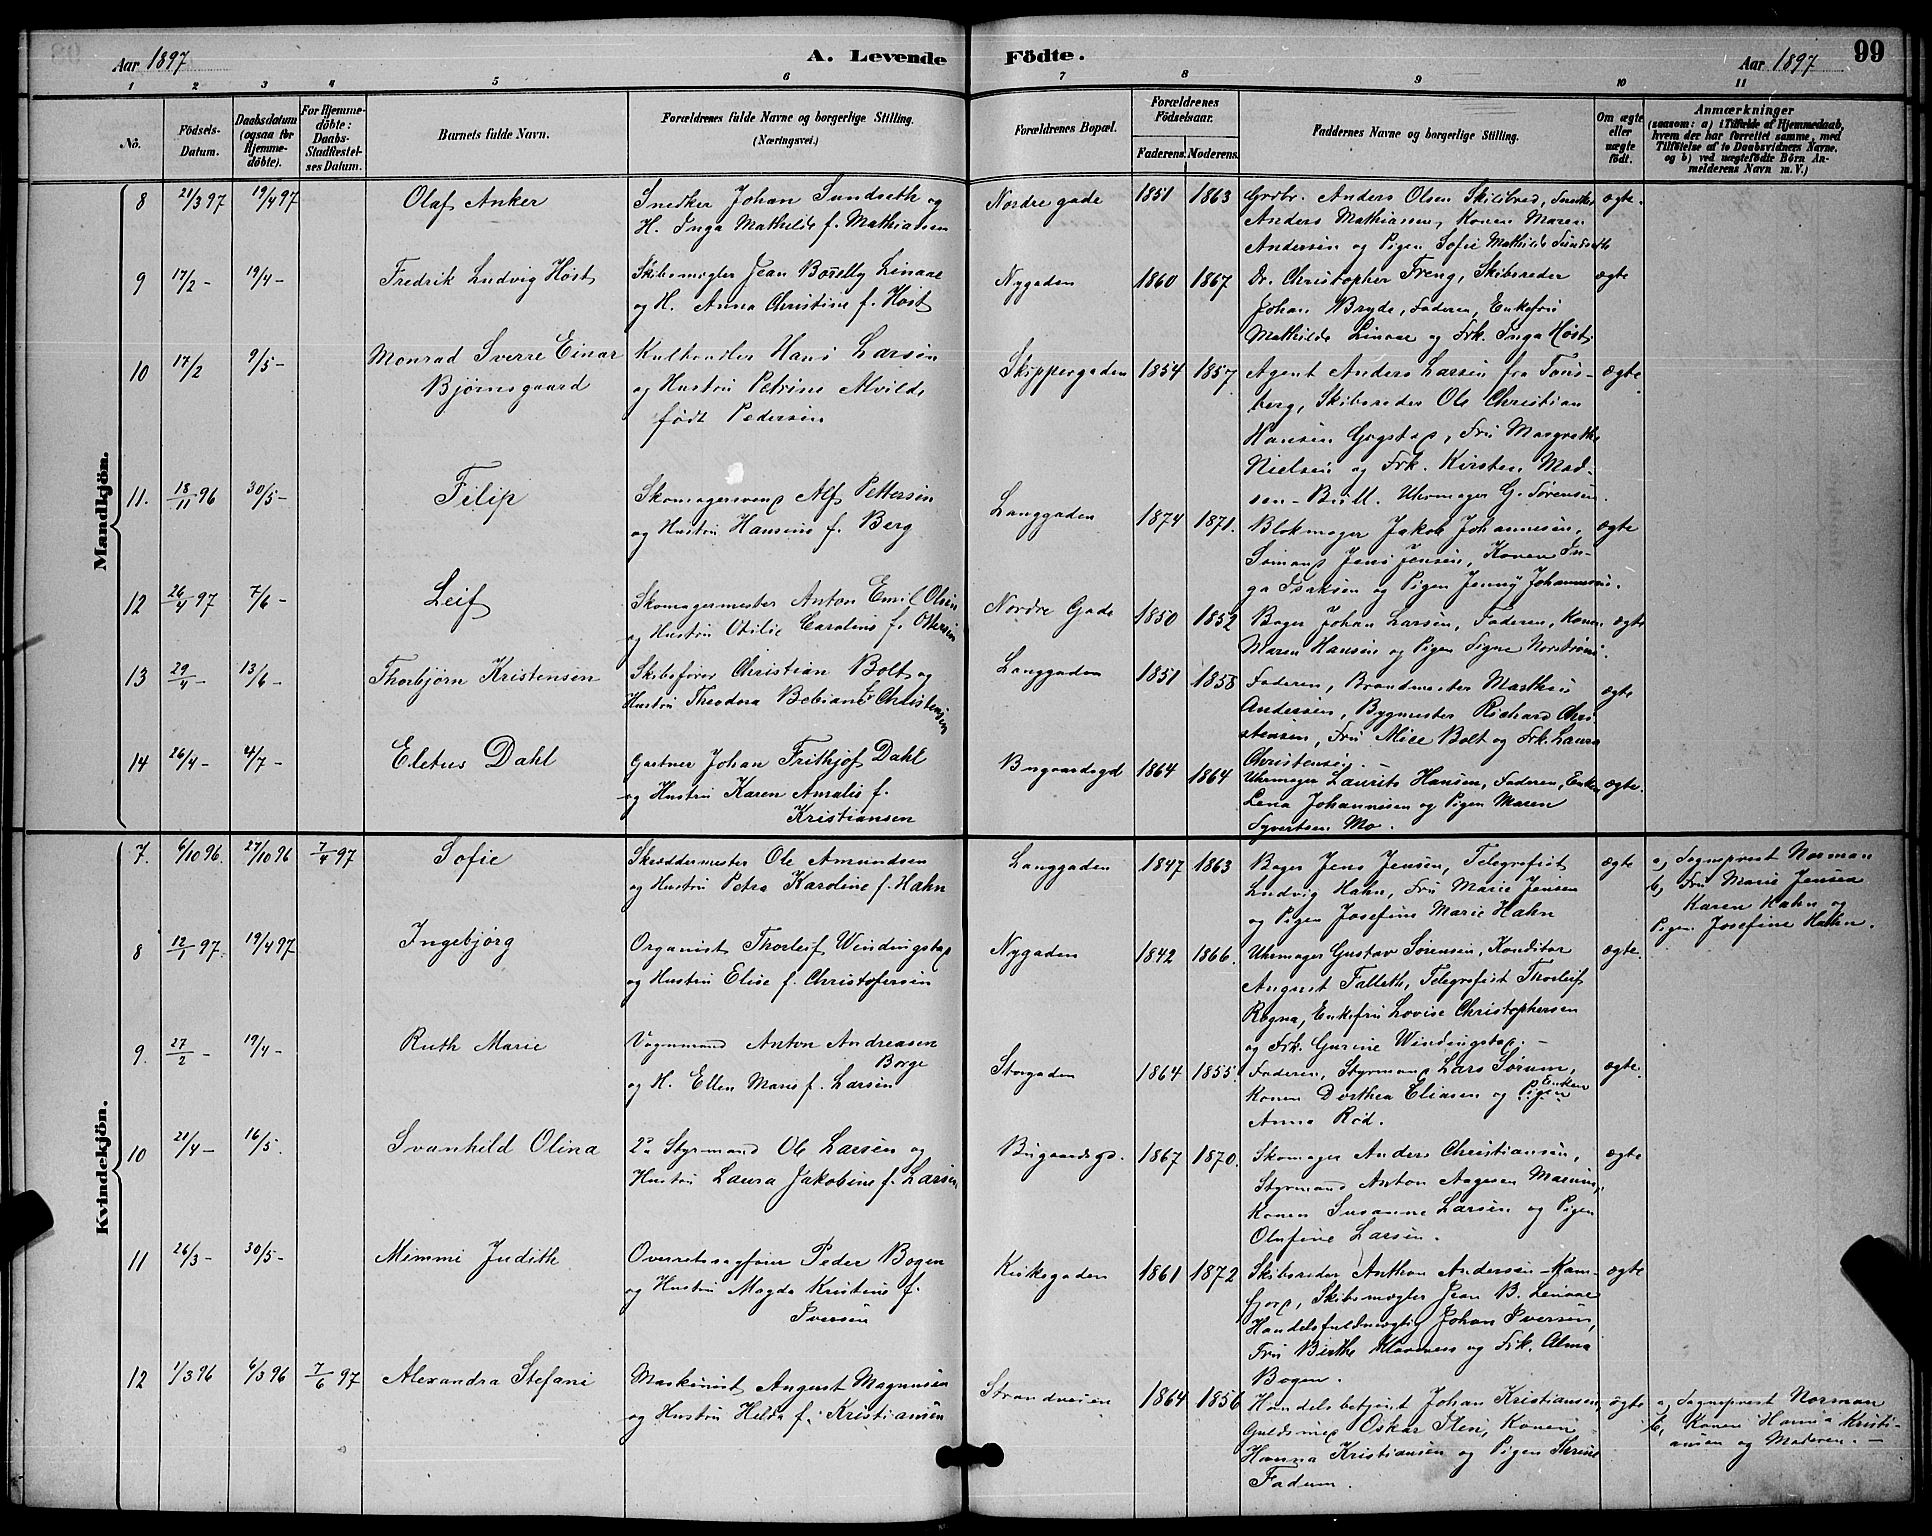 Aar 1897 A. Levende Födte. Aar 1897 99
1 2 3 4 5 6 7 8 9 10 11
No. Födsels-Datum. Daabsdatum (ogsaa for Hjemmedöbte). For Hjemmedöbte: Daabs-Stadfæstelses Datum. Barnets fulde Navn. Forældrenes fulde Navne og borgerlige Stilling. (Næringsvei.) Forældrenes Bopæl. Forældrenes Födselsaar. Faderens. Moderens. Faddernes Navne og borgerlige Stilling. Om ægte eller uægte födt. Anmærkninger (saasom: a) i Tilfælde af Hjemmedaab, hvem der har forrettet samme, med Tilföielse af to Daabsvidners Navne, og b) ved uægtefödte Börn Anmelderens Navn m.V.)
Mandkjön.
8 21/3 97 19/4 97 Olaf Anker Snedker Johan Sundseth og Nordre gade 1851 1863 Grdbr. Anders Olsen Skilibred, Snedker ægte.
H. Inga Mathilde f. Mathiasen Anders Mathiassen, Konen Maren
Andersen og Pigen Sofie Mathilde Sundseth
9 17/2 - 19/4 - Fredrik Ludvig Høst Skibsmægler Jean Borelly Linaae Nygaden 1860 1867 Dr. Christopher Freng, Skibsreder ægte
og H. Anna Christine f. Høst Johan Bryde, Faderen, Enkefru
Mathilde Linaae og Frk. Inga Høst.
10 17/2 9/5 - Monrad Sverre Einar Kulhandler Hans Larsen Skippergaden 1854 1857 Agent Anders Larsen fra Tøns- ægte
Bjørnsgaard og Hustru Petrine Alvilde berg, Skibsreder Ole Christian
født Pedersen Hansen Gogstad, Fru Margrethe
Nielsen og Frk. Kirsten Mad-
sen-Bull. Uhrmager G. Sørensen.
11. 18/11 96 30/5 - Filip Skomagersvend Alf Pettersen Langgaden 1874 1871. Blokmager Jakob Johannesen, ægte
og Hustru Hansine f. Berg Sømand Jens Jensen, Konen In-
ga Isaksen og Pigen Jenny Johannesen.
12 26/4 97 7/6 - Leif Skomagermester Anton Emil Olsen Nordre Gade 1850 1852 Bager Johan Larsen, Faderen, Konen ægte
og Hustru Otilie Caroline f. Ottersen Maren Hansen og Pigen Signe Nordstrøm.
13 29/4 - 13/6 - Thorbjørn Kristensen Skibsfører Christian Bolt og Langgaden 1851 1858 Faderen, Brandmester Mathias ægte
Hustru Theodora Bebiane f. Christensen Andersen, Bygmester Richard Chri-
stensen, Fru Alice Bolt og Frk. Laura
Christensen. -
14 26/4 - 4/7 - Eletus Dahl Gartner Johan Frithjof Dahl Bugaardsgd 1864 1864 Uhrmager Laurits Hansen, Faderen, Enken ægte.
og Hustru Karen Amalie f. Lena Johannesen og Pigen Maren
Kristiansen Syvertsen Mo.
Kvindekjön.
7. 6/10 96. 27/10 96 7/4 97 Sofie Skræddermester Ole Amundsen Langgaden 1847 1863 Bager Jens Jensen, Telegrafist ægte a, Sogneprest Norman
og Hustru Petra Karoline f. Hahn Ludvig Hahn, Fru Marie Jensen b, Fru Marie Jensen
og Pigen Josefine Marie Hahn Karen Hahn og
Pigen Josefine Hahn.
8 12/1 97. 19/4 97 Ingebjørg Organist Thorleif Windingstad Nygaden 1842 1866. Uhrmager Gustav Sørensen, Konditor ægte.
og Hustru Elise f. Christofersen August Falleth, Telegrafist Thorleif
Rogna, Enkefru Lovise Christophersen
og Frk. Gurine Windingstad. -
9. 27/2 - 19/4 - Ruth Marie Vognmand Anton Andreasen Storgaden 1864 1855. Faderen, Styrmand Lars Sørum, ægte.
Borge
og H. Ellen Marie f. Larsen Konen Dorthea Eliasen og Pigen Enken
Anna Rød.
10 21/4 - 16/5. Svanhild Olina 2n Styrmand Ole Larsen og Bugaardsgd. 1867 1870. Skomager Anders Christiansen, ægte
Hustru Laura Jakobine f. Larsen Styrmand Anton Aagesen Marum,
Konen Susanne Larsen og Pigen
Olufine Larsen.
11 26/3 - 30/5 - Mimmi Judith Overretssagfører Peder Bogen Kirkegaden 1861 1872 Skibsreder Anthon Andersen-Kam- ægte
og Hustru Magda Kristine f. fjord, Skibsmægler Jean B. Linaae
Iversen Handelsfuldmægtig Johan Iversen,
Fru Birthe Klaveness og Frk. Alma
Bogen.
12 1/3 96 6/3 96 7/6 97 Alexandra Stefani Maskinist August Magnusen Strandveien 1864 1856 Handelsbetjent Johan Kristiansen, ægte a, Sogneprest Norman
og Hustru Helda f. Kristiansen Guldsmed Oskar Steen, Konen b, Konen Hanna Kristi-
Hanna Kristiansen og Pigen Thrine ansen og Moderen. -
Fadum.